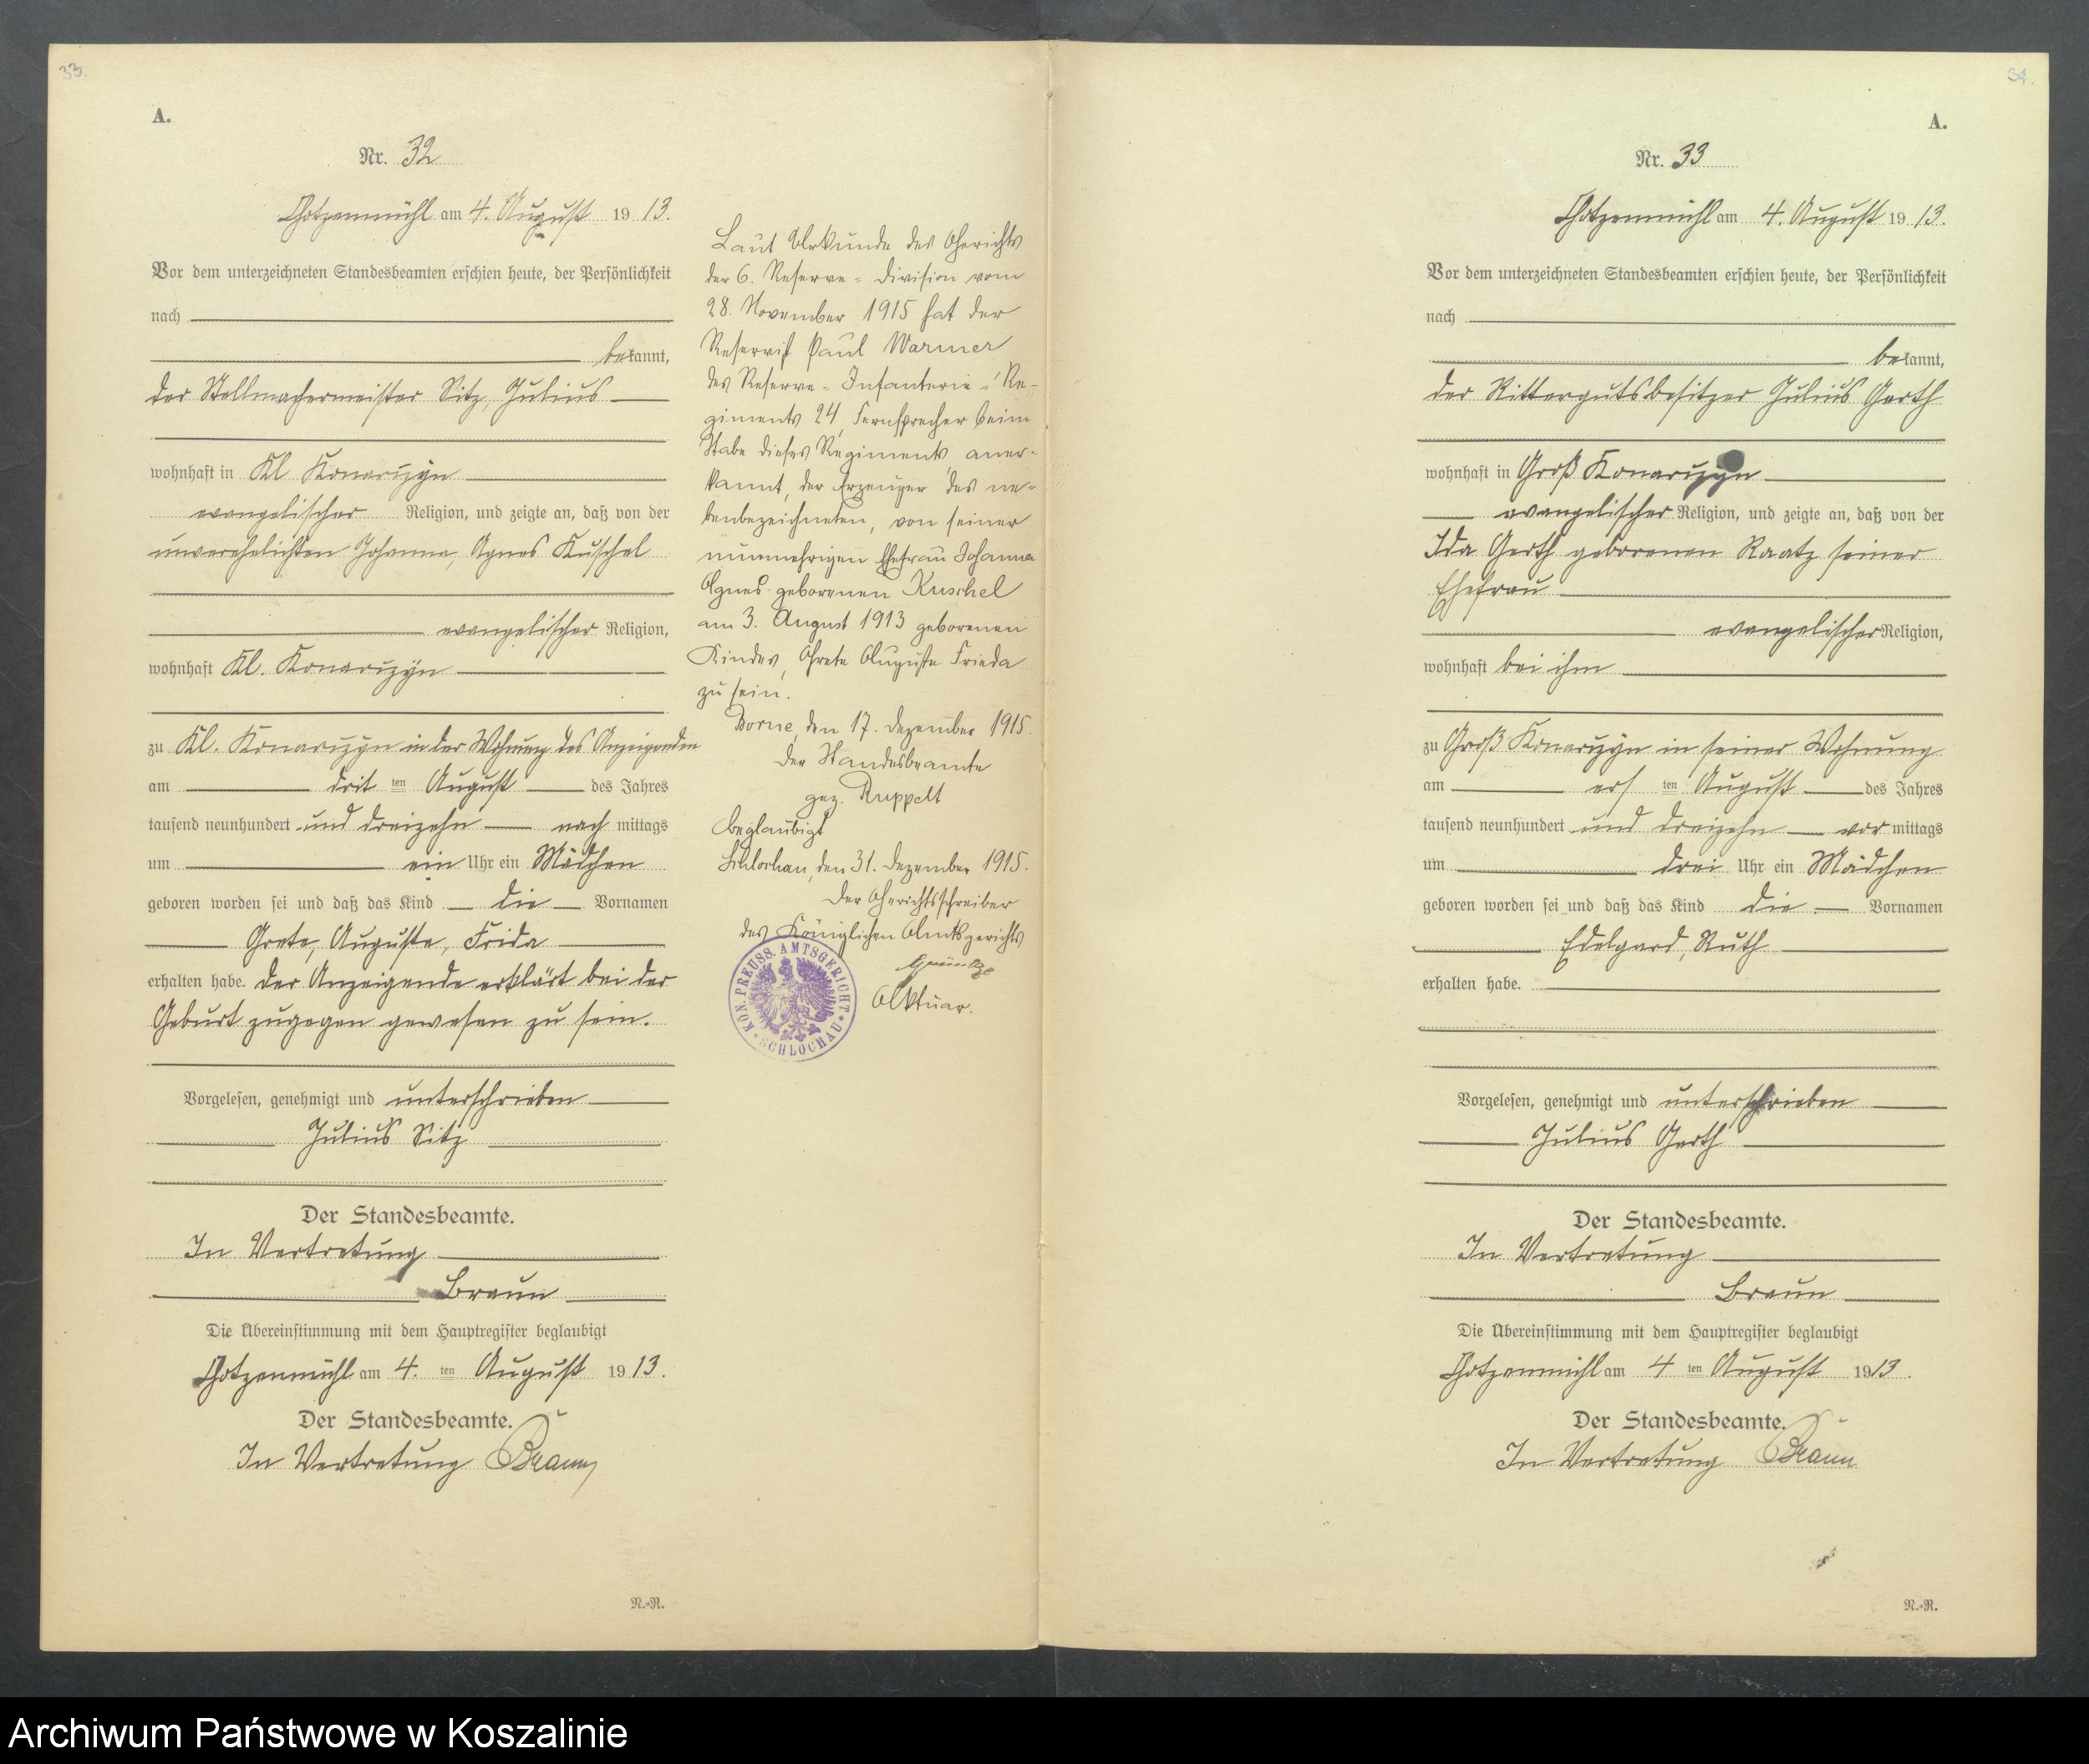 33.
A.
Nr. 32
Gotzenmühl am 4. August 1913.
Vor dem unterzeichneten Standesbeamten erschien heute, der Persönlichkeit
nach
bekannt,
der Stellmachermeister Sitz, Julius
wohnhaft in Kl Konarczyn
evangelischer Religion, und zeigte an, daß von der
unverehelichten Johanna, Agnes Kuschel
evangelischer Religion,
wohnhaft Kl. Konarczyn
zu Kl. Konarczyn in der Wohnung des Anzeigenden
am dritten August des Jahres
tausend neunhundert und dreizehn nachmittags
um ein Uhr ein Mädchen
geboren worden sei und daß das Kind die Vornamen
Grete, Auguste, Frida
erhalten habe. Der Anzeigende erklärt bei der
Geburt zugegen gewesen zu sein.
Vorgelesen, genehmigt und unterschrieben
Julius Sitz
Der Standesbeamte.
In Vertretung
Braun
Die Übereinstimmung mit dem Hauptregister beglaubigt
Gotzenmühl am 4. ten August 1913.
Der Standesbeamte.
In Vertretung Braun
N.-R.
Laut Urkunde des Gerichts
der 6. Reserve-Division vom
28. November 1915 hat der
Reservist Paul Warmer
des Reserve-Infanterie-Re-
giments 24, Fernsprecher beim
Stabe dieses Regiments aner-
kannt, der Erzeuger des ne-
benbezeichneten, von seiner
nunmehrigen Ehefrau Johanna
Agnes geborenen Kuschel
am 3. August 1913 geborenen
Kindes, Grete Auguste Frieda
zu sein.
Borne, den 17. Dezember 1915.
Der Standesbeamte
gez. Ruppelt
Beglaubigt
Schlochau, den 31. Dezember 1915.
Der Gerichtsschreiber
des Königlichen Amtsgerichts
Aktuar.
KÖN. PREUSS. AMTSGERICHT
SCHLOCHAU
34.
A.
Nr. 33
Gotzenmühl am 4. August 1913.
Vor dem unterzeichneten Standesbeamten erschien heute, der Persönlichkeit
nach
bekannt,
der Rittergutsbesitzer Julius Gerth
wohnhaft in Groß Konarczyn
evangelischer Religion, und zeigte an, daß von der
Ida Gerth geborenen Raatz seiner
Ehefrau
evangelischer Religion,
wohnhaft bei ihm
zu Groß Konarczyn in seiner Wohnung
am ersten August des Jahres
tausend neunhundert und dreizehn vormittags
um drei Uhr ein Mädchen
geboren worden sei und daß das Kind die Vornamen
Edelgard, Ruth
erhalten habe.
Vorgelesen, genehmigt und unterschrieben
Julius Gerth
Der Standesbeamte.
In Vertretung
Braun
Die Übereinstimmung mit dem Hauptregister beglaubigt
Gotzenmühl am 4 ten August 1913.
Der Standesbeamte.
In Vertretung Braun
N.-R.
Archiwum Państwowe w Koszalinie